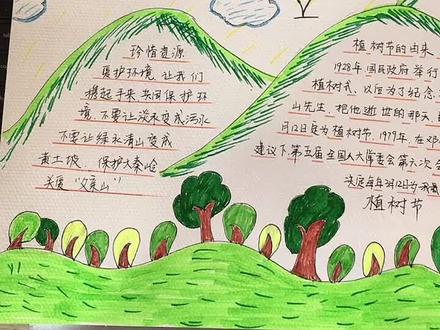 珍惜资源
爱护环境,让我们
携起手来,共同保护环
境,不要让淡水变成污水
不要让绿水青山变成
黄土坡、保护大秦岭
关爱“父亲山”
植树节的由来
1928年,国民政府举行
植树式,以后为了纪念
山先生,把他逝世的那天
月12日定为植树节,1979年,在邓
建议下第五届全国人大常委会第六次会
决定每年3月12日为我
植树节